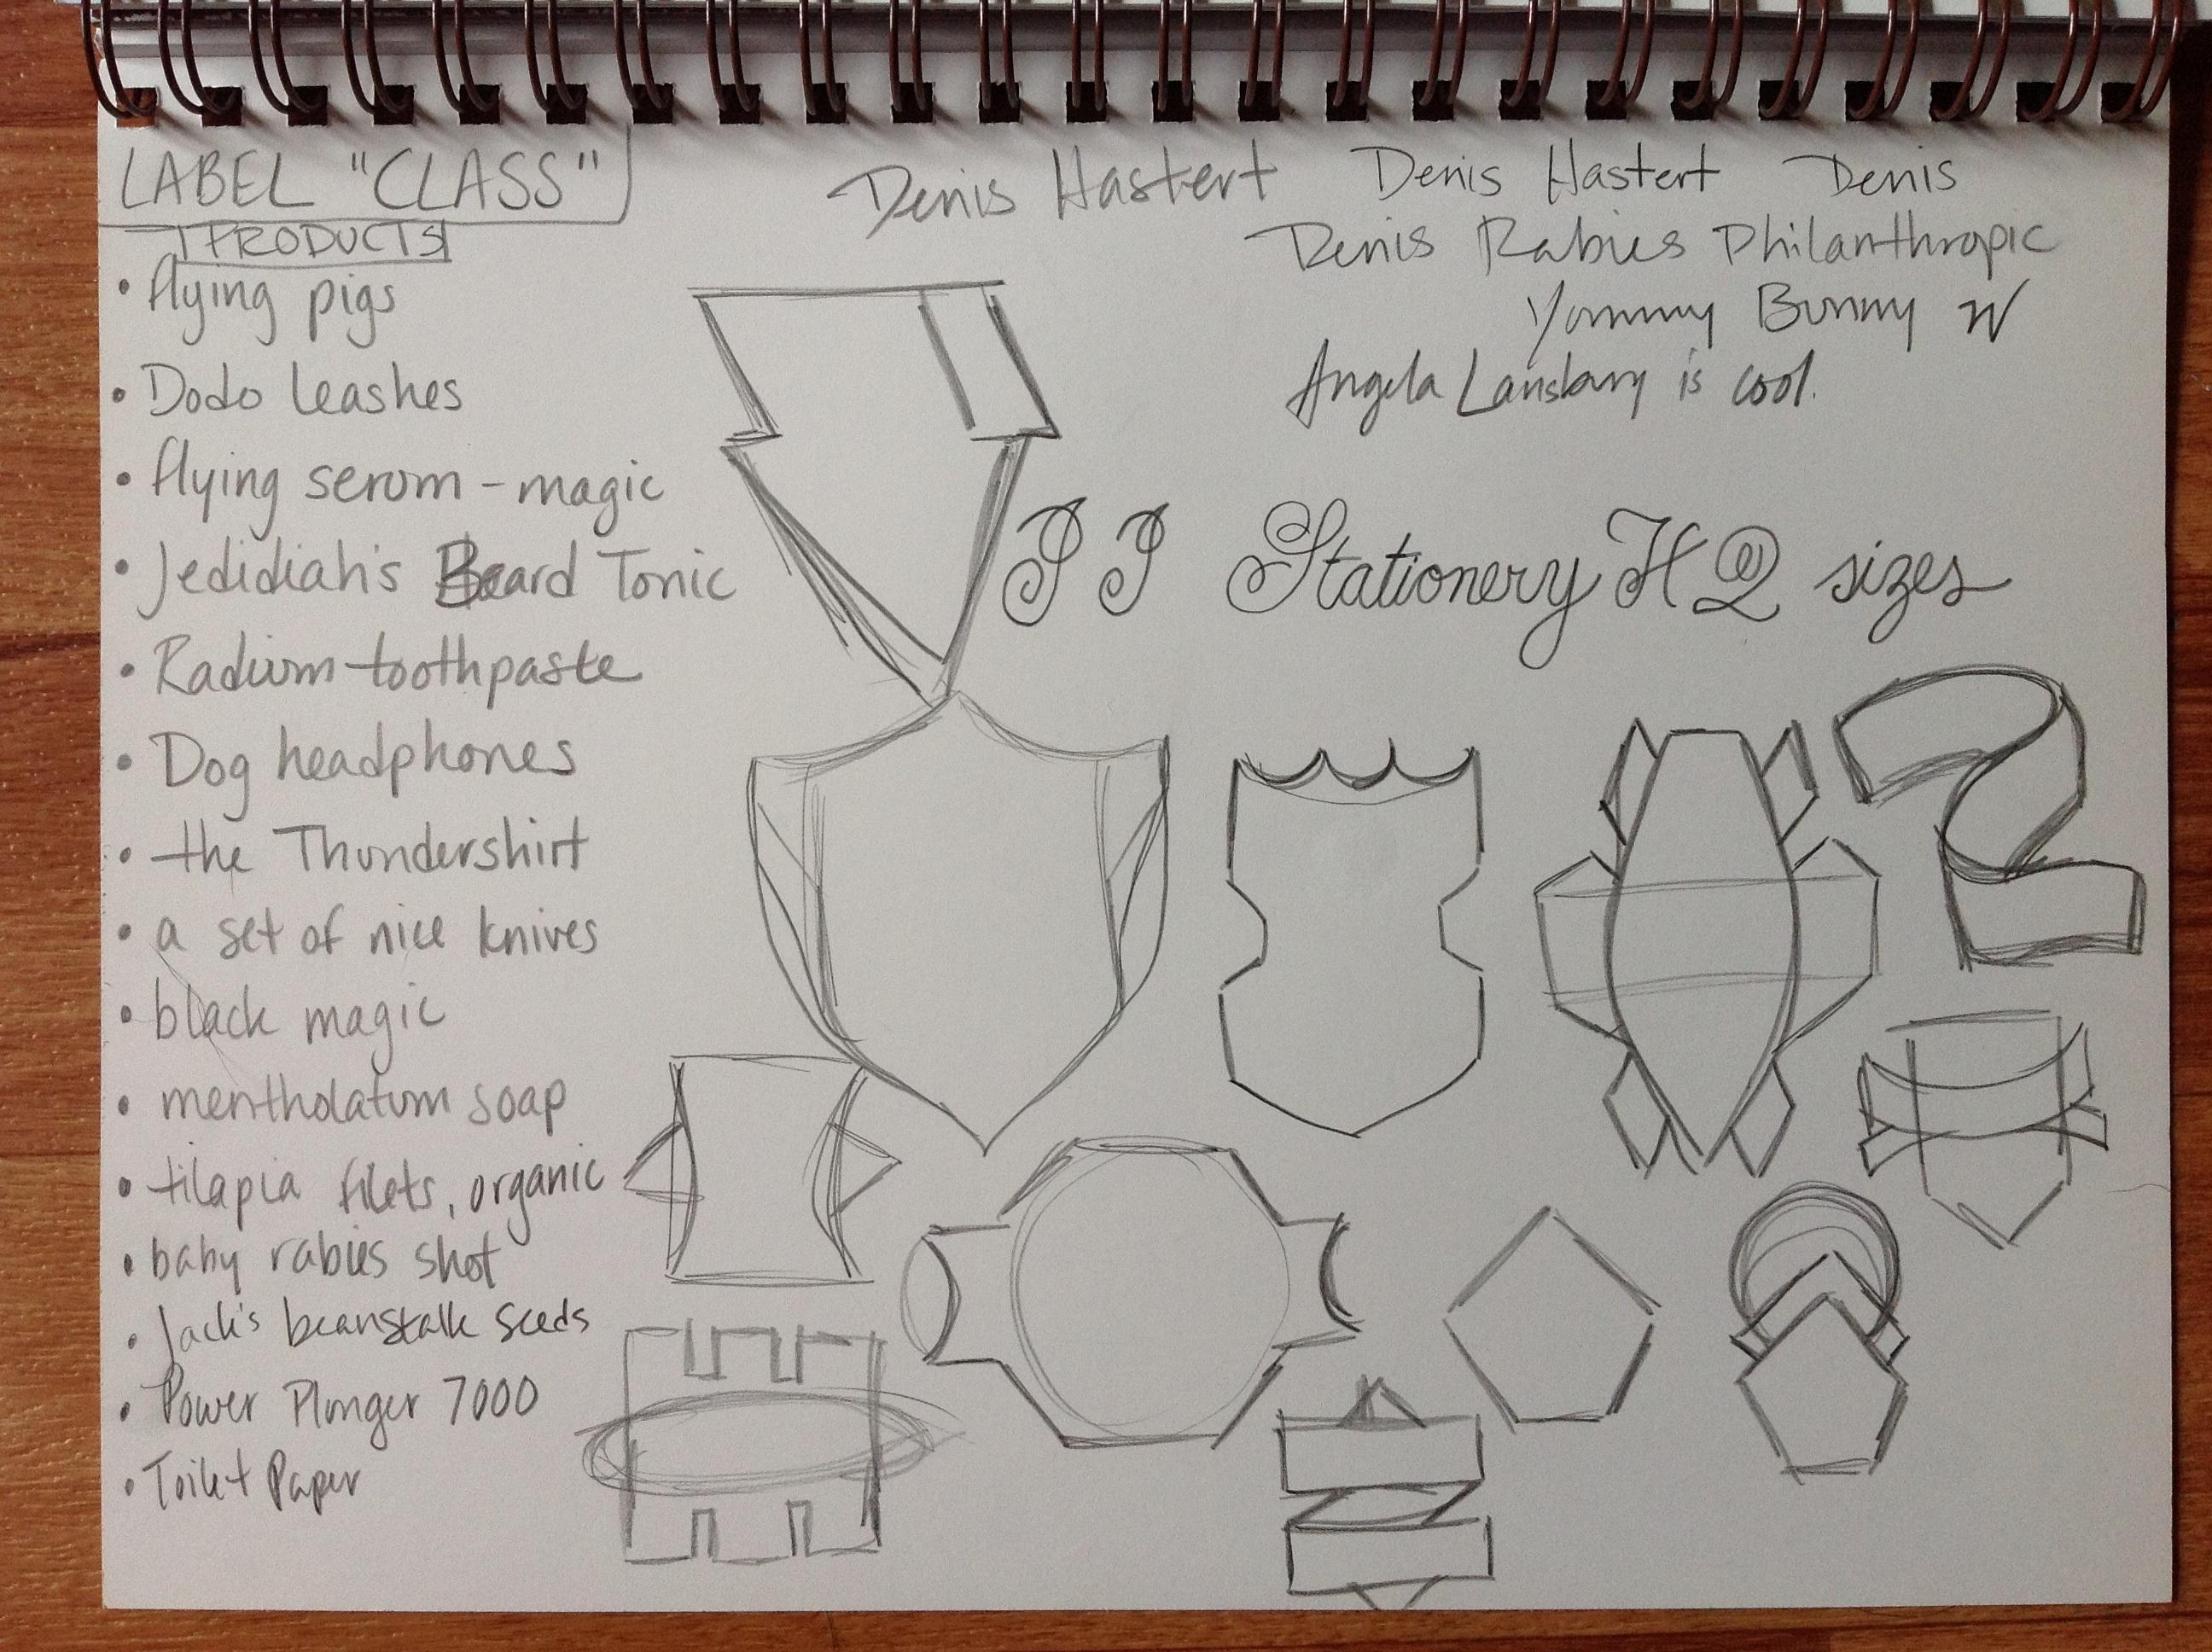 LABEL "CLASS"
PRODUCTS
• flying pigs
• Dodo leashes
• flying serum - magic
• Jedidiah's Beard Tonic
• Radium toothpaste
• Dog headphones
• the Thundershirt
• a set of nice knives
• black magic
• mentholatum soap
• tilapia filets, organic
• baby rabies shot
• Jack's beanstalk seeds
• Power Plunger 7000
• Toilet Paper
Denis Hastert Denis Hastert Denis
Denis Rabies Philanthropic
Yummy Bunny
Angela Lansbury is cool.
Stationery HQ sizes